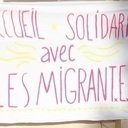 CCUEIL SOLIDAR
avec
LES MIGRANTE